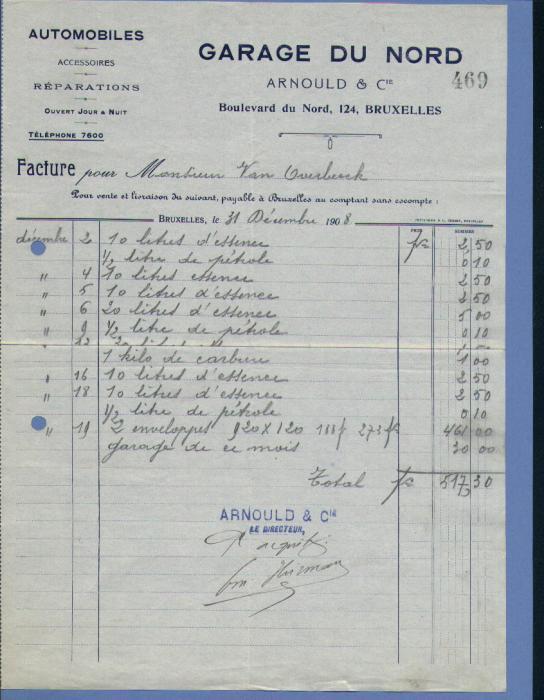 AUTOMOBILES
ACCESSOIRES
RÉPARATIONS
OUVERT JOUR & NUIT
TÉLÉPHONE 7600
GARAGE DU NORD
ARNOULD & CIE
469
Boulevard du Nord, 124, BRUXELLES
Facture pour Monsieur Van Overbeeck
Pour vente et livraison du suivant, payable à Bruxelles au comptant sans escompte :
BRUXELLES, le 31 Décembre 1908
décembre 2 10 litres d'essence 2 50
1/2 litre de pétrole 0 10
" 4 10 litres essence 2 50
" 5 10 litres d'essence 2 50
" 6 20 litres d'essence 5 00
" 9 1/2 litre de pétrole 0 10
1 kilo de carbure 1 00
" 16 10 litres d'essence 2 50
" 18 10 litres d'essence 2 50
1/2 litre de pétrole 0 10
" 19 2 enveloppes 920 X 120 461 00
garage de ce mois 30 00
Total 517 30
ARNOULD & CIE
LE DIRECTEUR,